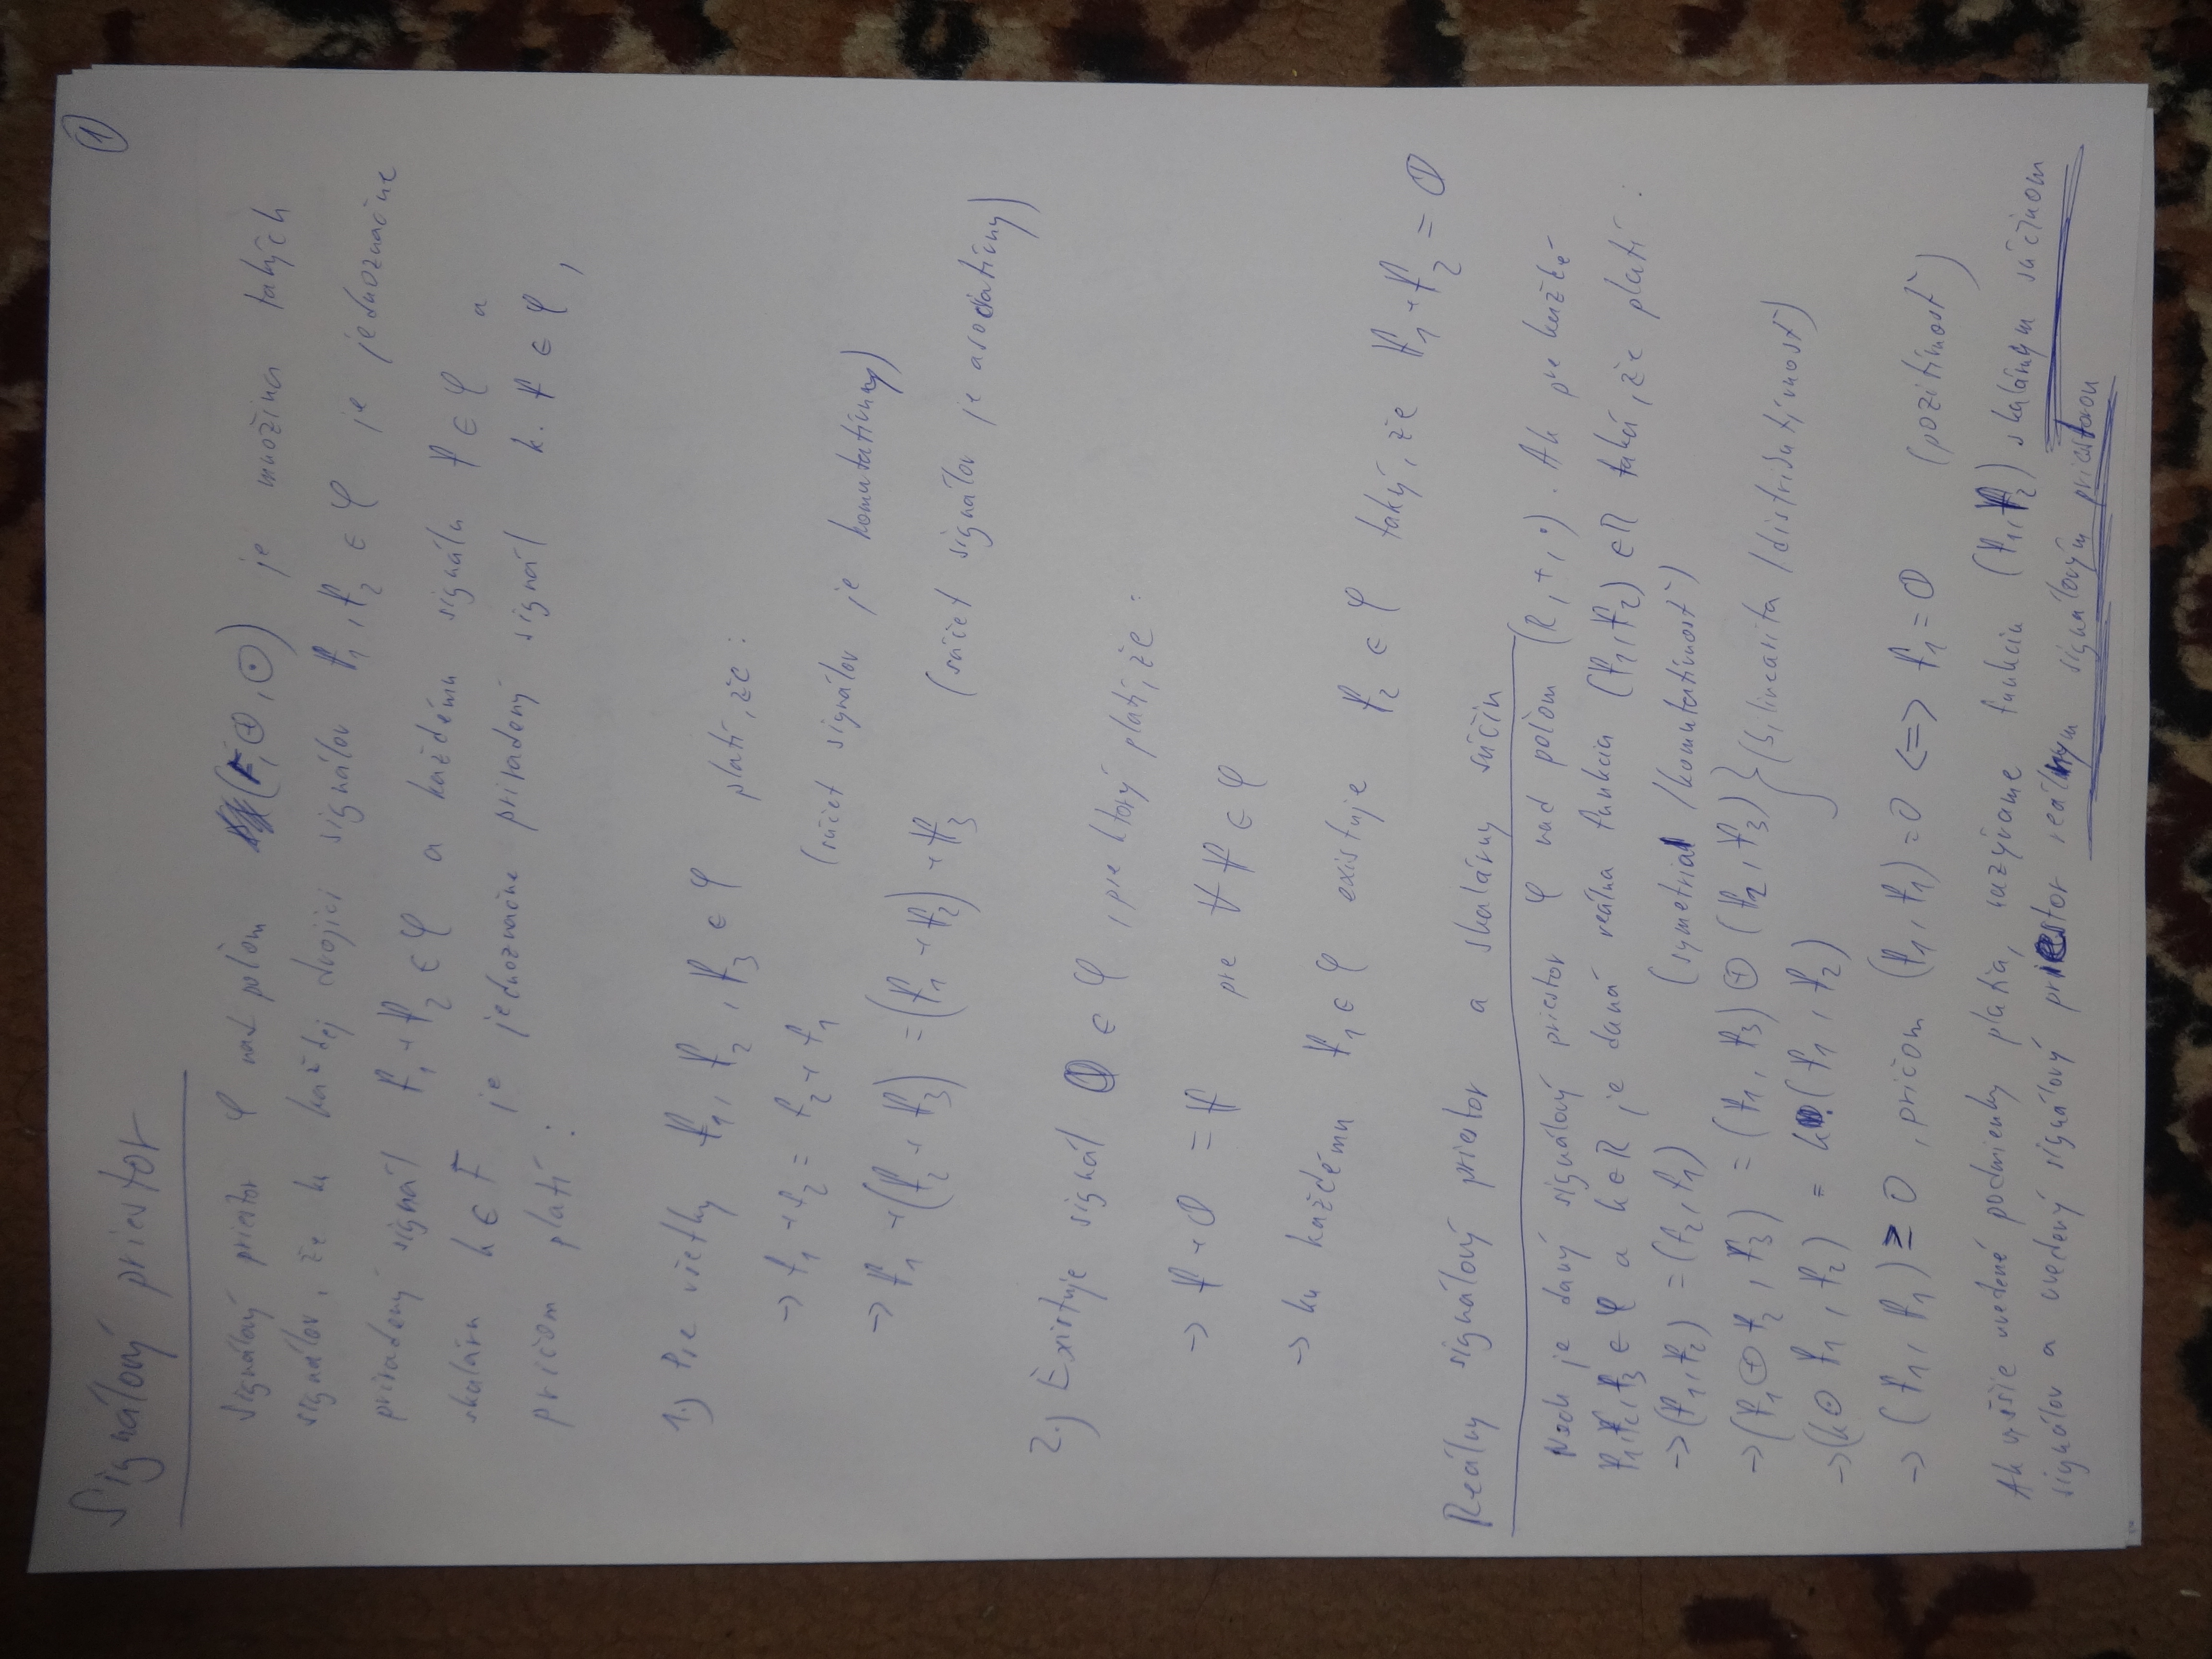 1
Signálový priestor
Signálový priestor φ nad poľom (F, ⊕, ⊙) je množina takých
signálov, že ku každej dvojici signálov f₁, f₂ ∈ φ je jednoznačne
priradený signál f₁ + f₂ ∈ φ a každému signálu f ∈ φ a
skaláru k ∈ F je jednoznačne priradený signál k. f ∈ φ,
pričom platí :
1.) Pre všetky f₁, f₂, f₃ ∈ φ platí, že :
→ f₁ + f₂ = f₂ + f₁ (súčet signálov je komutatívny)
→ f₁ + (f₂ + f₃) = (f₁ + f₂) + f₃ (súčet signálov je asociatívny)
2.) Existuje signál 𝕆 ∈ φ, pre ktorý platí, že :
→ f + 𝕆 = f pre ∀ f ∈ φ
→ ku každému f₁ ∈ φ existuje f₂ ∈ φ taký, že f₁ + f₂ = 𝕆
Reálny signálový priestor a skalárny súčin
Nech je daný signálový priestor φ nad poľom (R, +, •). Ak pre každé
f₁, f₂, f₃ ∈ φ a k ∈ R je daná reálna funkcia (f₁, f₂) ∈ R taká, že platí :
→ (f₁, f₂) = (f₂, f₁) (symetria /komutatívnosť)
→ (f₁ ⊕ f₂, f₃) = (f₁, f₃) ⊕ (f₂, f₃) } (bilinearita /distributívnosť)
→ (k ⊙ f₁, f₂) = k.(f₁, f₂)
→ (f₁, f₁) ≥ 0, pričom (f₁, f₁) = 0 <=> f₁ = 𝕆 (pozitívnosť)
Ak vyššie uvedené podmienky platia, nazývame funkciu (f₁, f₂) skalárnym súčinom
signálov a uvedený signálový priestor reálnym signálovým priestorom